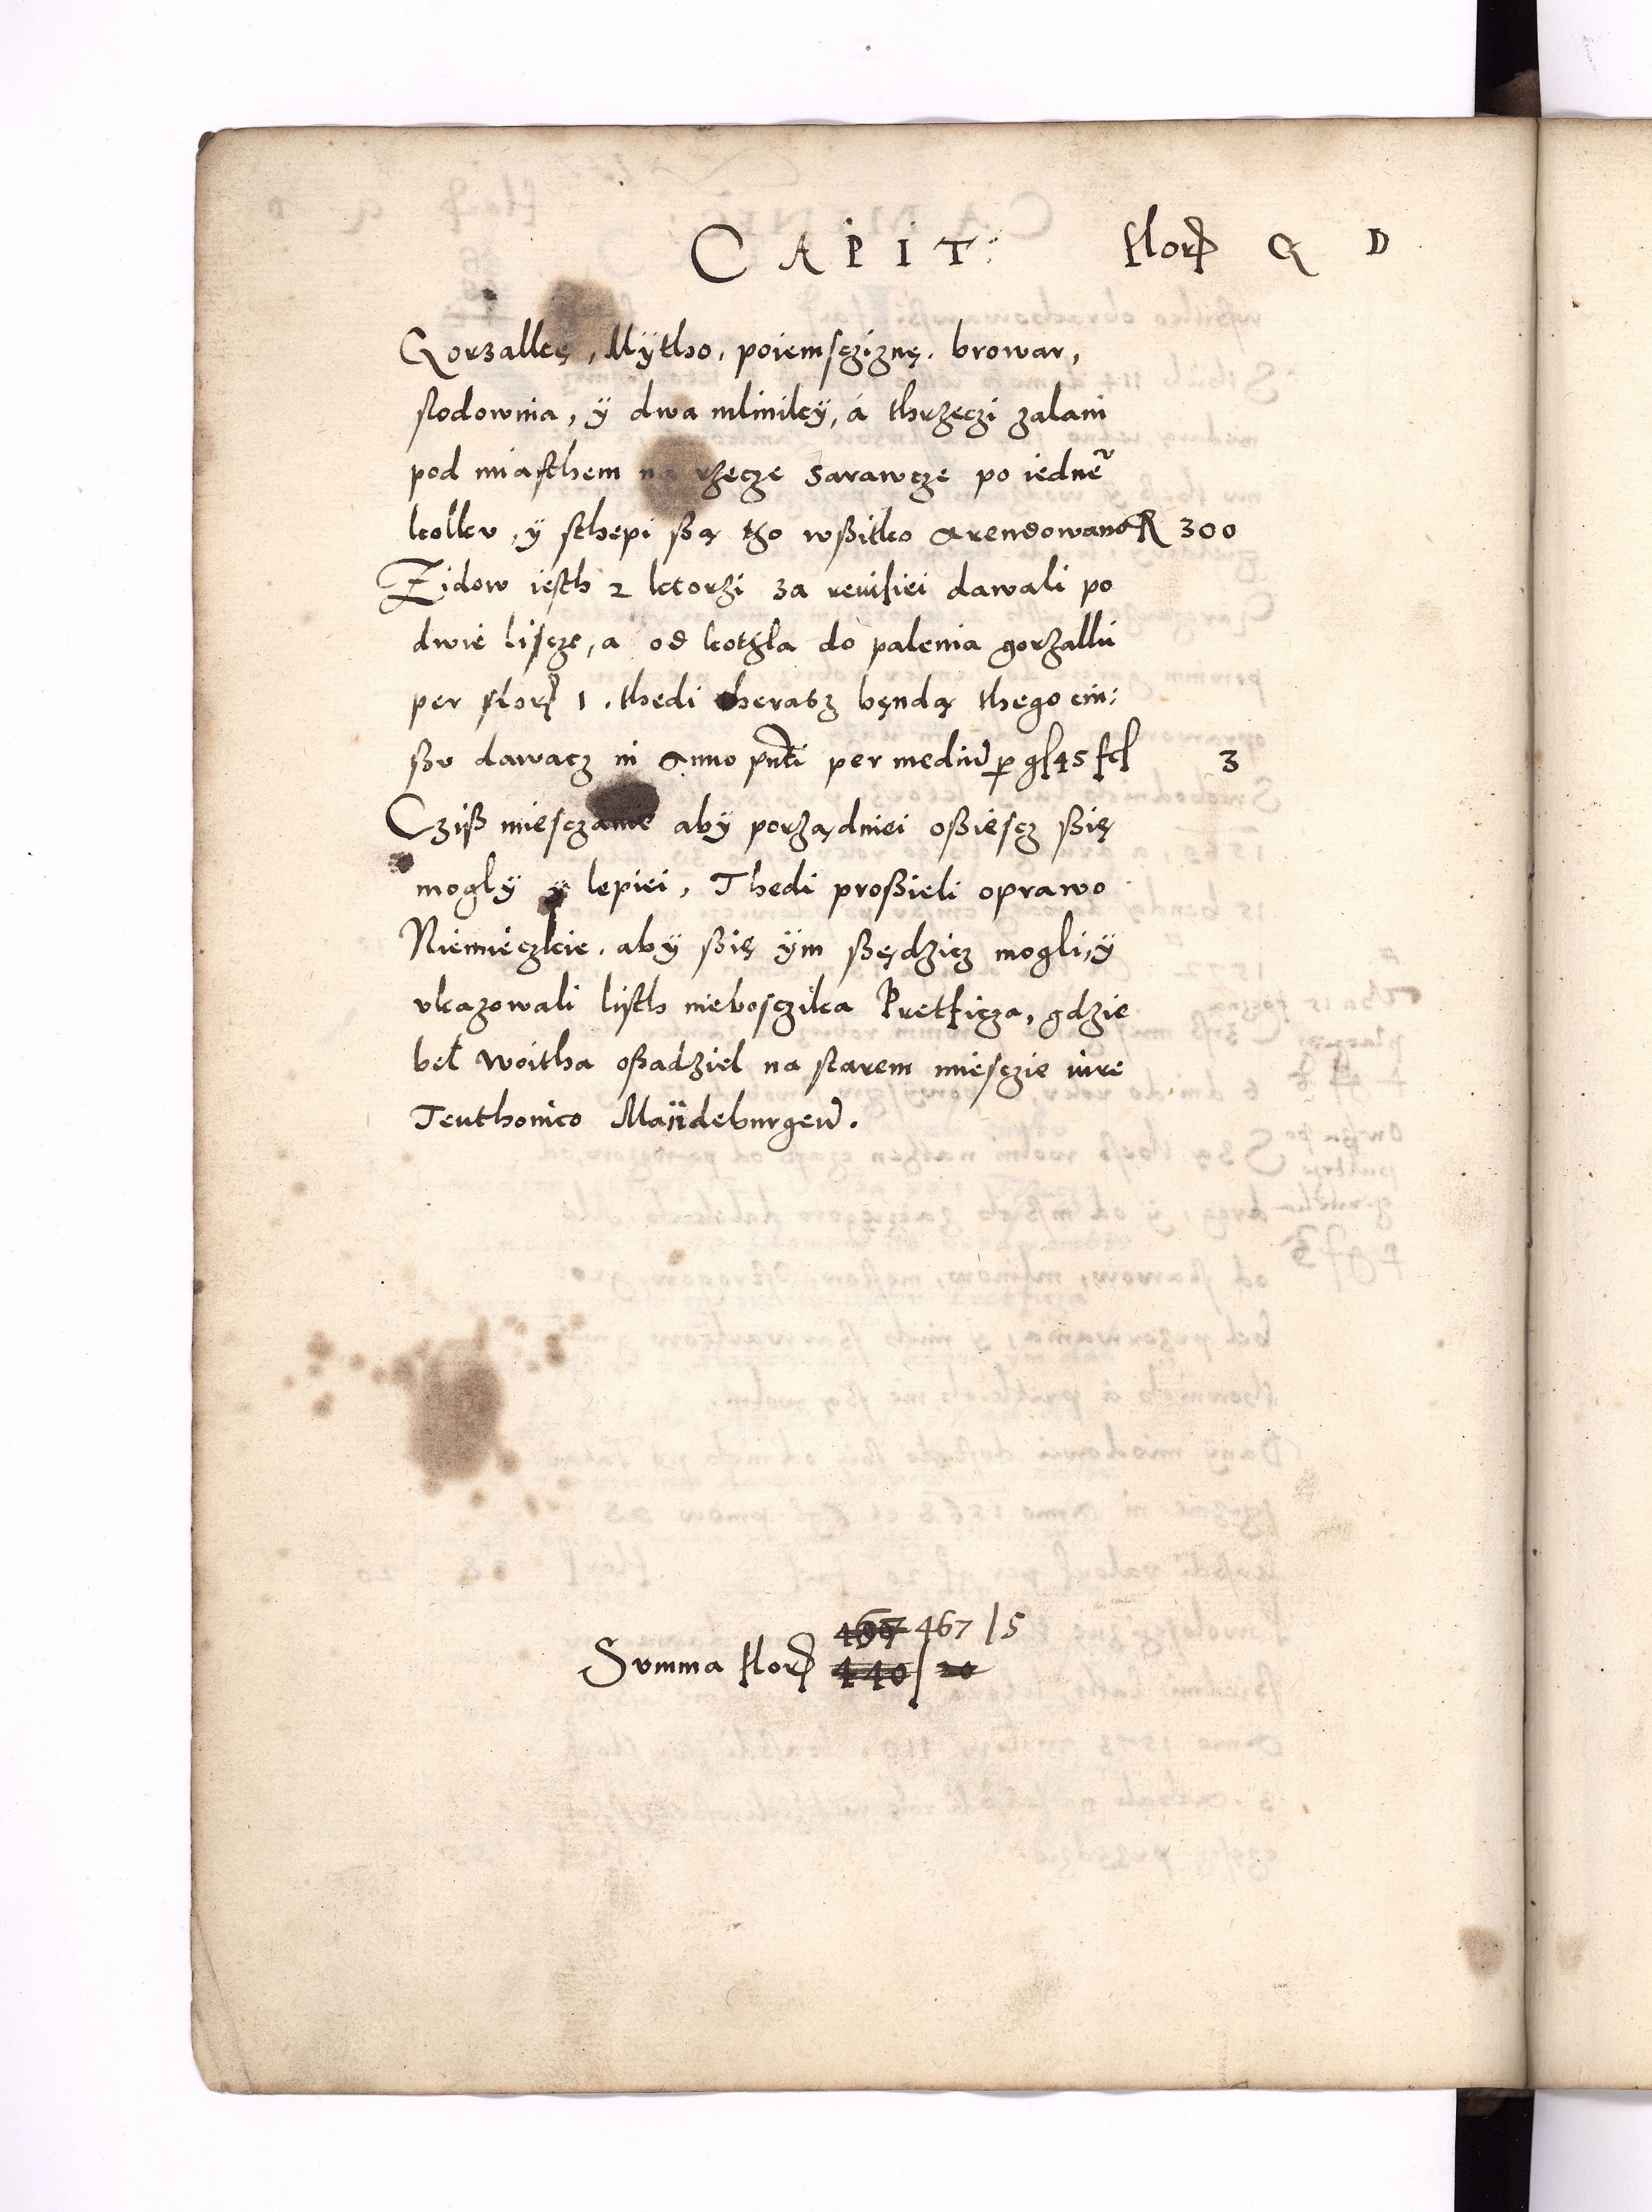 CAPIT: flor G D
Gorzalkę, Mÿtho, poiemsczиznę, browar,
slodownia, ÿ dwa mlinikÿ, á thrzeczi zalani
pod miasthem na rzecze Sarawcze po iedne
kollv, ÿ sthepi ßą tho wßitko arendowano R 300
Zidow iesth 2 ktorzi za reuisiei dawali po
dwie lisczе, a od kothla do palenia gorzalki
per flor 1. thedi therasz będą thego cin:
ßv dawacz in Anno pnti per mediu p gl 45 fcl 3
Cziß miesczanie aby porządniei oßiescz ßię
moglÿ ÿ lepiei, Thedi proßieli oprawo
Niemieczkie, abÿ ßię ÿm ßędzicz mogli, ÿ
vkazowali listh niebosczika Pretficza, gdzie
bel Woitha oßadziel na starem miesczie iure
Teuthonico Maÿdeburgen.
467 / 5
Summa flor 440 / 20